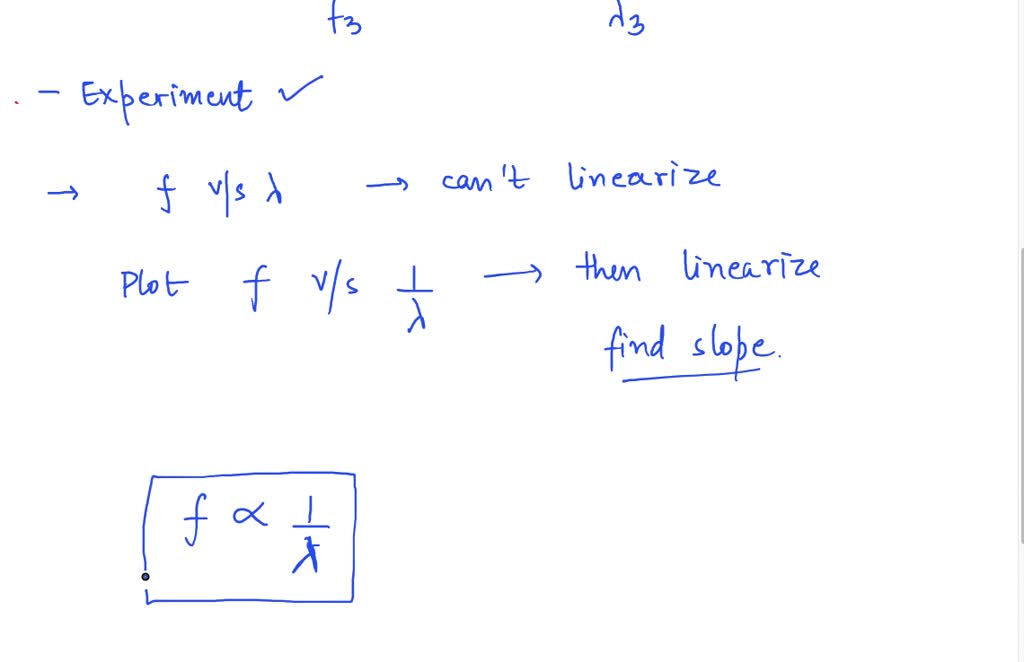 f3 λ3
- Experiment ✓
→ f v/s λ → can't linearize
Plot f v/s 1/λ → then linearize
find slope.
f ∝ 1/λ